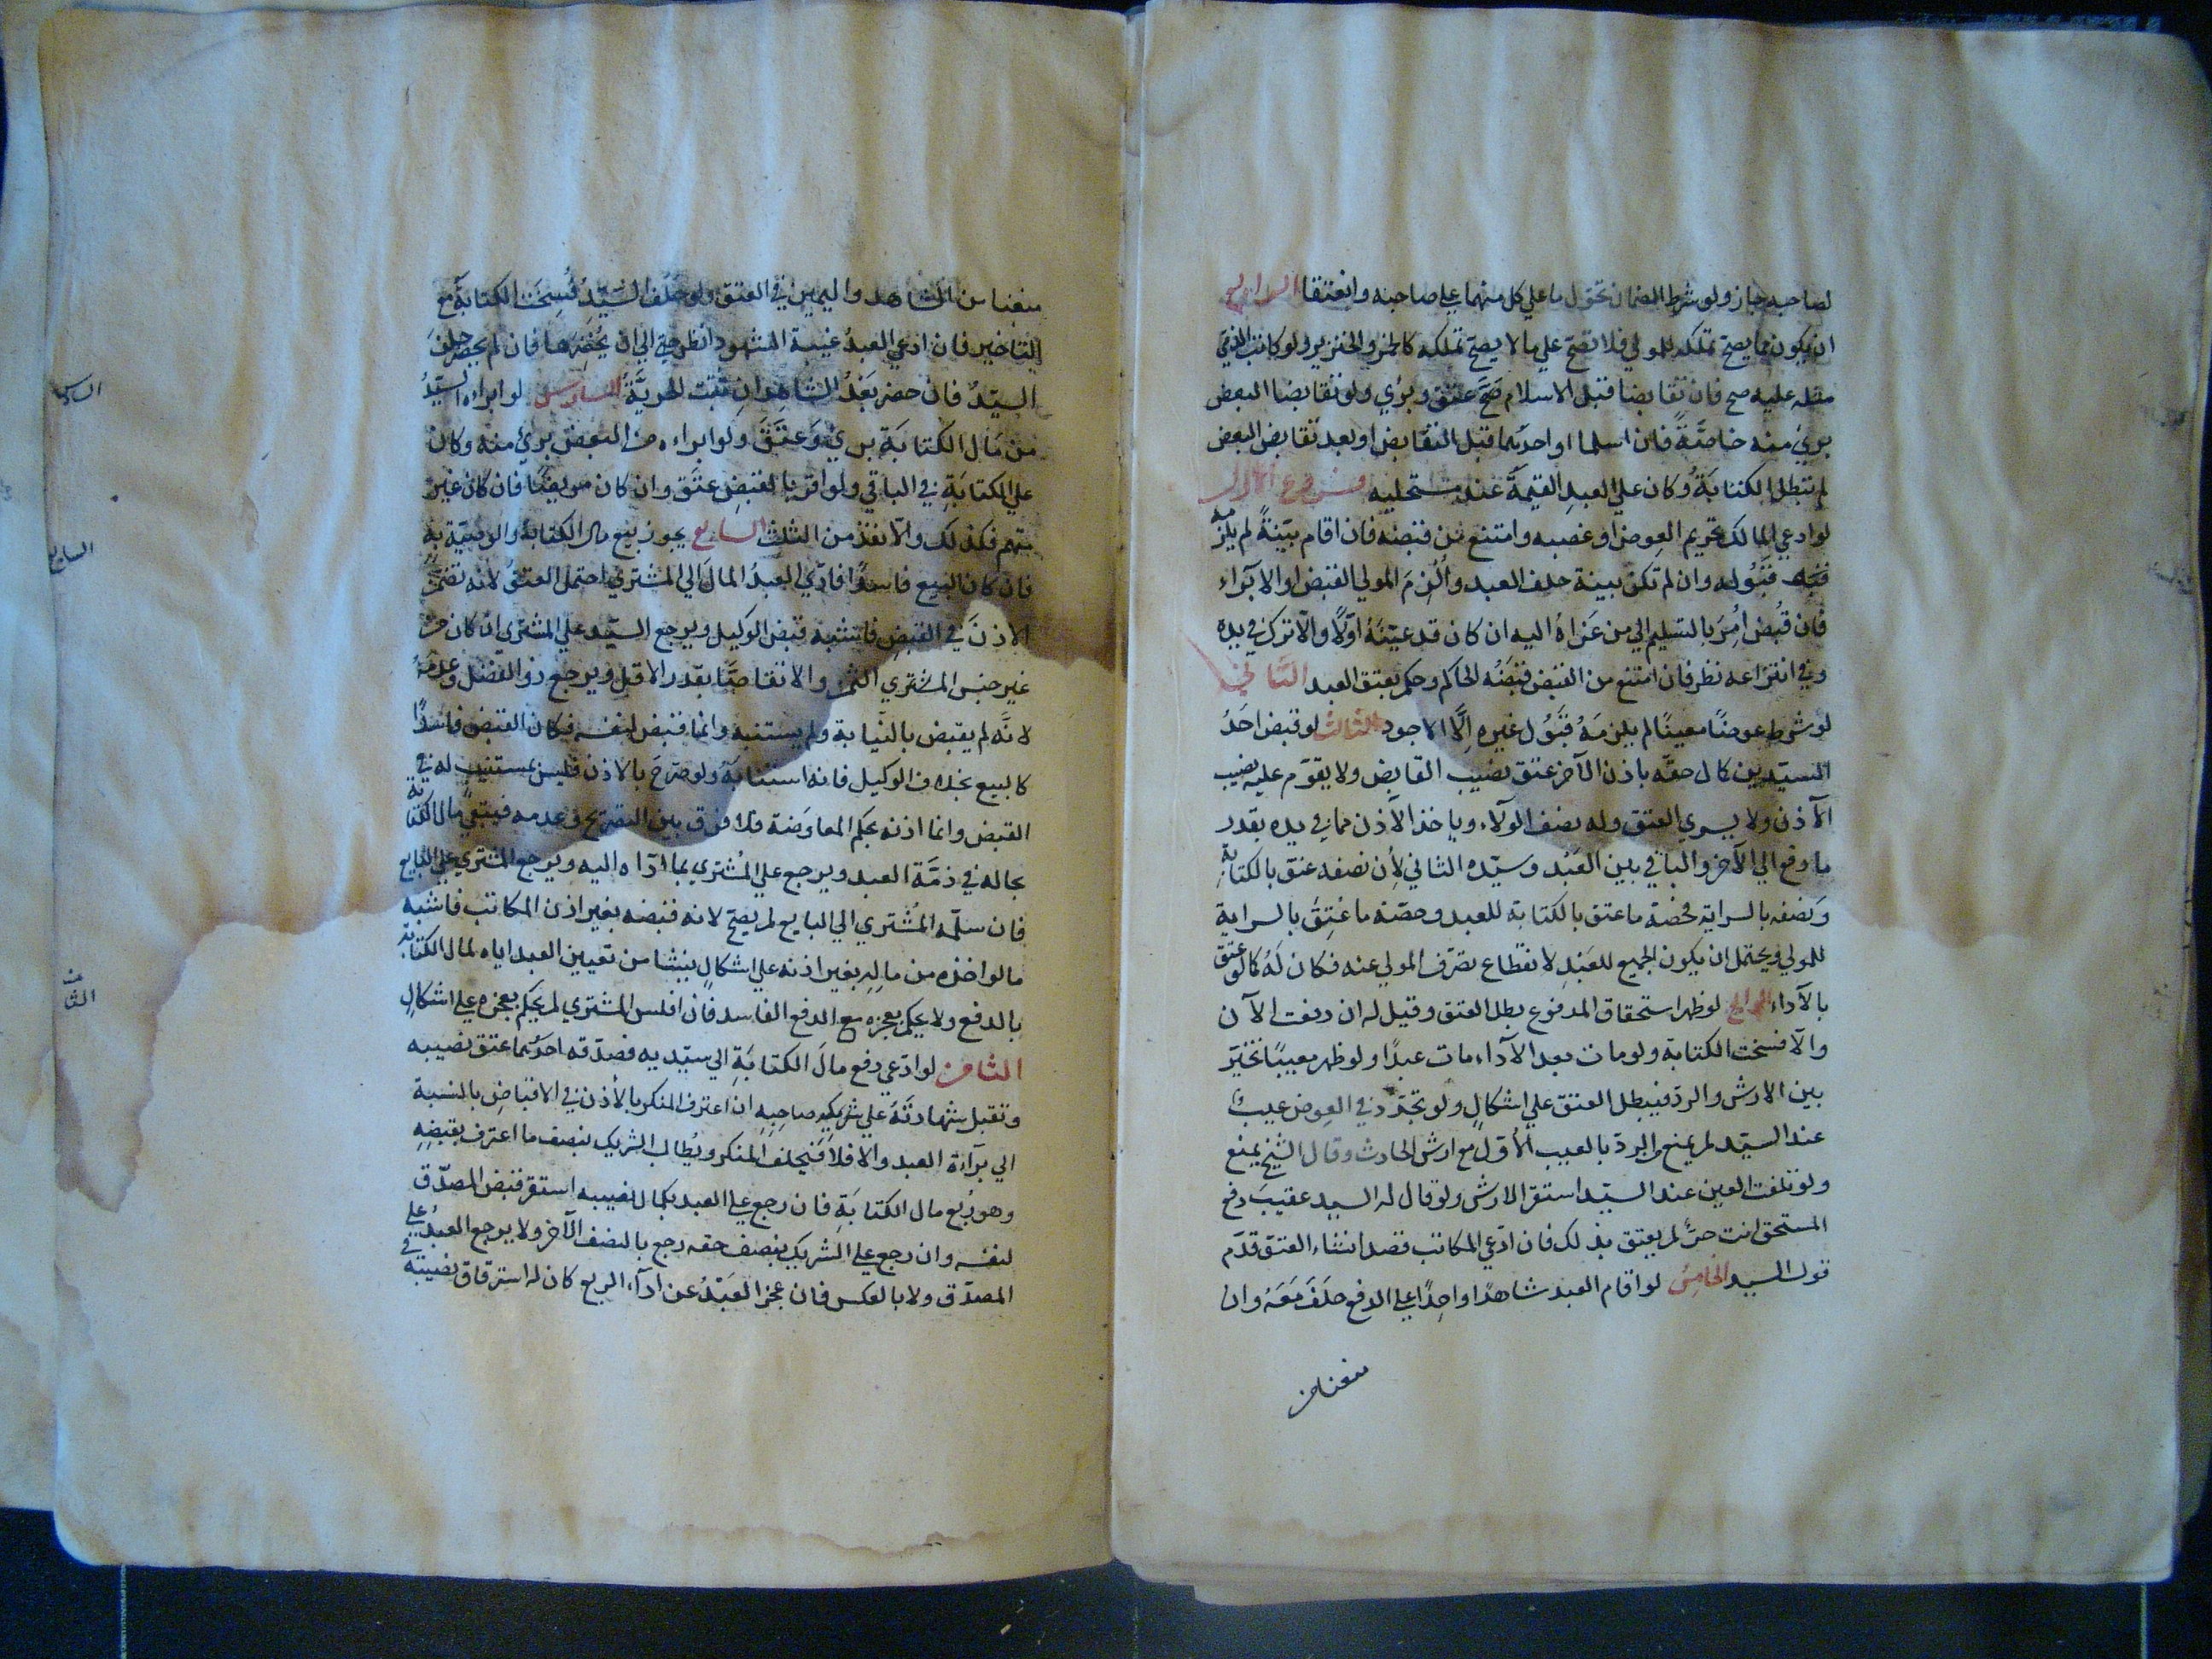 لصاحبه جاز ولو شرط الضمان تحول ما علي كل منهما علي صاحبه وانعتقا الرابع
ان يكون مما يصح تملكه للمولي فلا تصح علي ما لا يصح تملكه كالخمر والخنزير ولو كاتب الذمي
مثله عليه صح فان تقابضا قبل الاسلام صَحَّ عتق وبرُي ولو تقابضا البعض
بريُ منه خاصّةً فان اسلما او احدُهما قبل التقابض او بعد تقابض البعض
لم تبطل الكتابَةُ وكان علي العبدِ القيمةُ عند مستحليه فروع الاول
لو ادعي المالك تحريم العِوض او غصبه وامتنع من قبضه فان اقام بيّنةً لم يلزمه
قبوُله وان لم تكن بينة حلف العبد واُلزِمَ المولي القبض او الابراء
فان قُبض اُمِرَ بالتسليم الي من عَزاهُ اليه ان كان قد عيّنَهُ اوّلًا والّا ترك في يده
وفي انتزاعه نظر فان امتنع من القبض قبَضَه الحاكم وحكم بعتق العبد الثاني
لو شرط عوضًا معينًا لم يلزمَهُ قَبُول غيره اِلَّا الاجود الثالث لو قبض احَدُ
السيّدين كمال حقّه باذن الآخر عتق نصيب القابض ولا يقوّم عليه نصيب
الآذن ولا يسري العتق وله نصف الولاء وياخذ الآذن مما في يده بقدر
ما دفع الي الآخر والباقي بين العَبْد وسيّده الثاني لأِن نصفه عتق بالكتابةِ
وَنصفه بالسراية فحصّة ما عتق بالكتابة للعبد وحصّة ما عُتِقَ بالسراية
للمولي ويحتمل ان يكون الجميع للعَبْدِ لانقطاع تصرّف المولي عنه فكان لَهُ كما لو عتق
بالاداء الرابع لو ظهر استحقاق المدفوع بطل العتق وقيل له ان دفعت الآن
والّا فسخت الكتابة ولو مات بعد الاداء مات عبدًا ولو ظهر معيبًا تخيّر
بين الارش والردّ فيبطل العتق علي اشكالٍ ولو تجدّد في العِوض عيبٌ
عند السيّد لم يمنع من الردّ بالعيب الأوّل مع ارش الحادث وقال الشيخ يمنع
ولو تلفت العين عند السيّد استقرّ الارش ولو قال له السيد عقيبَ دفع
المستحق انت حرٌّ لم يعتق بذلك فان ادّعي المكاتب قصد انشاء العتق قدّم
قول السيد الخامِسُ لو اقام العبد شاهدًا واحِدًا علي الدفع حلَفَ مَعَهُ وان
منعنا من
منعنا من الشاهد واليمين في العتق ولو حلف السّيّدُ فُسِخَت الكتابةُ مع
التاخير فان ادعي العبدُ غيبة الشهود انظر حتي الي ان يُحْضِرَها فان لم يحضر حلف
السيّدُ فان حضر بَعْدُ الشاهدانِ ثبتت الحريَّةُ السادس لو ابراه السيّدُ
من مَال الكتابَة بريَ وَعتقَ ولو ابراه من البعض بريَ منه وكان
علي الكتابَةِ في الباقي ولو اقر بالقبضِ عتَق وان كان مريضًا فان كان غير
متهم فكذلك والّا نفذ من الثلث السابع يجوز بيع مال الكتابة والوصيّة به
فان كان البيع فاسدًا فادّي العبدُ المالَ الي المشتري احتمل العتقُ لانه تضمّن
الاذنَ في القبضِ فاشبه قبض الوكيل ويرجع السيّد علي المشتري ان كان من
غير جنس المشتري الثمن والا تقاصّا بقدر الاقل ويرجع ذو الفضل وعدمُهُ
لانَّه لم يقبض بالنّيابة ولم يستنبه وانما قبض لنفسه فكان القبض فاسدًا
كالبيع بخلاف الوكيل فانه استنابَهُ ولو صرّحَ بالاذن فليس بمستنيب له في
القبض وانما اذنه بحكم المعاوَضة فلا فرق بين التصريح وعدمه فيبقي مال الكتابة
بحاله في ذمَّة العبد ويرجع علي المُشتري بما ادّاه اليه ويرجع المشتري علي البايع
فان سلّمه المُشتري الي البايع لم يصح لانه قبضه بغير اذن المكاتب فاشبه
ما لو اخذه من مالِهِ بغير اذنه علي اشكالٍ ينشا من تعيين العبد اياه لمال الكتابة
بالدفع ولا يحكم بعجزه مع الدفع الفاسد فان افلس المشتري لم يحكم بعجزه علي اشكالٍ
الثامن لو ادّعي دفع مالَ الكتابَةِ الي سيّديه فصدّقه احدُهما عتق نصيبه
وتقبل شهادتهُ علي شريكِهِ صاحِبِهِ ان اعترف المنكر بالأذن في الاقباضِ بالنسبة
الي برآءة العبد والا فلا فيحلف المنكر ويُطالب الشريك بنصف ما اعترف بقبضِهِ
وهو رُبع مال الكتابَةِ فان رجع علي العبد بكمال نصيبه استقر قبض المصدّق
لنفسه وان رجع علي الشريك بنصف حقه رجع بالنصف الآخر ولا يرجع العبدُ علي
المصدّق ولا بالعكس فان عجز العَبْدُ عن ادآء الربع كان له استرقاق نصيبه في
السابع
الثامن